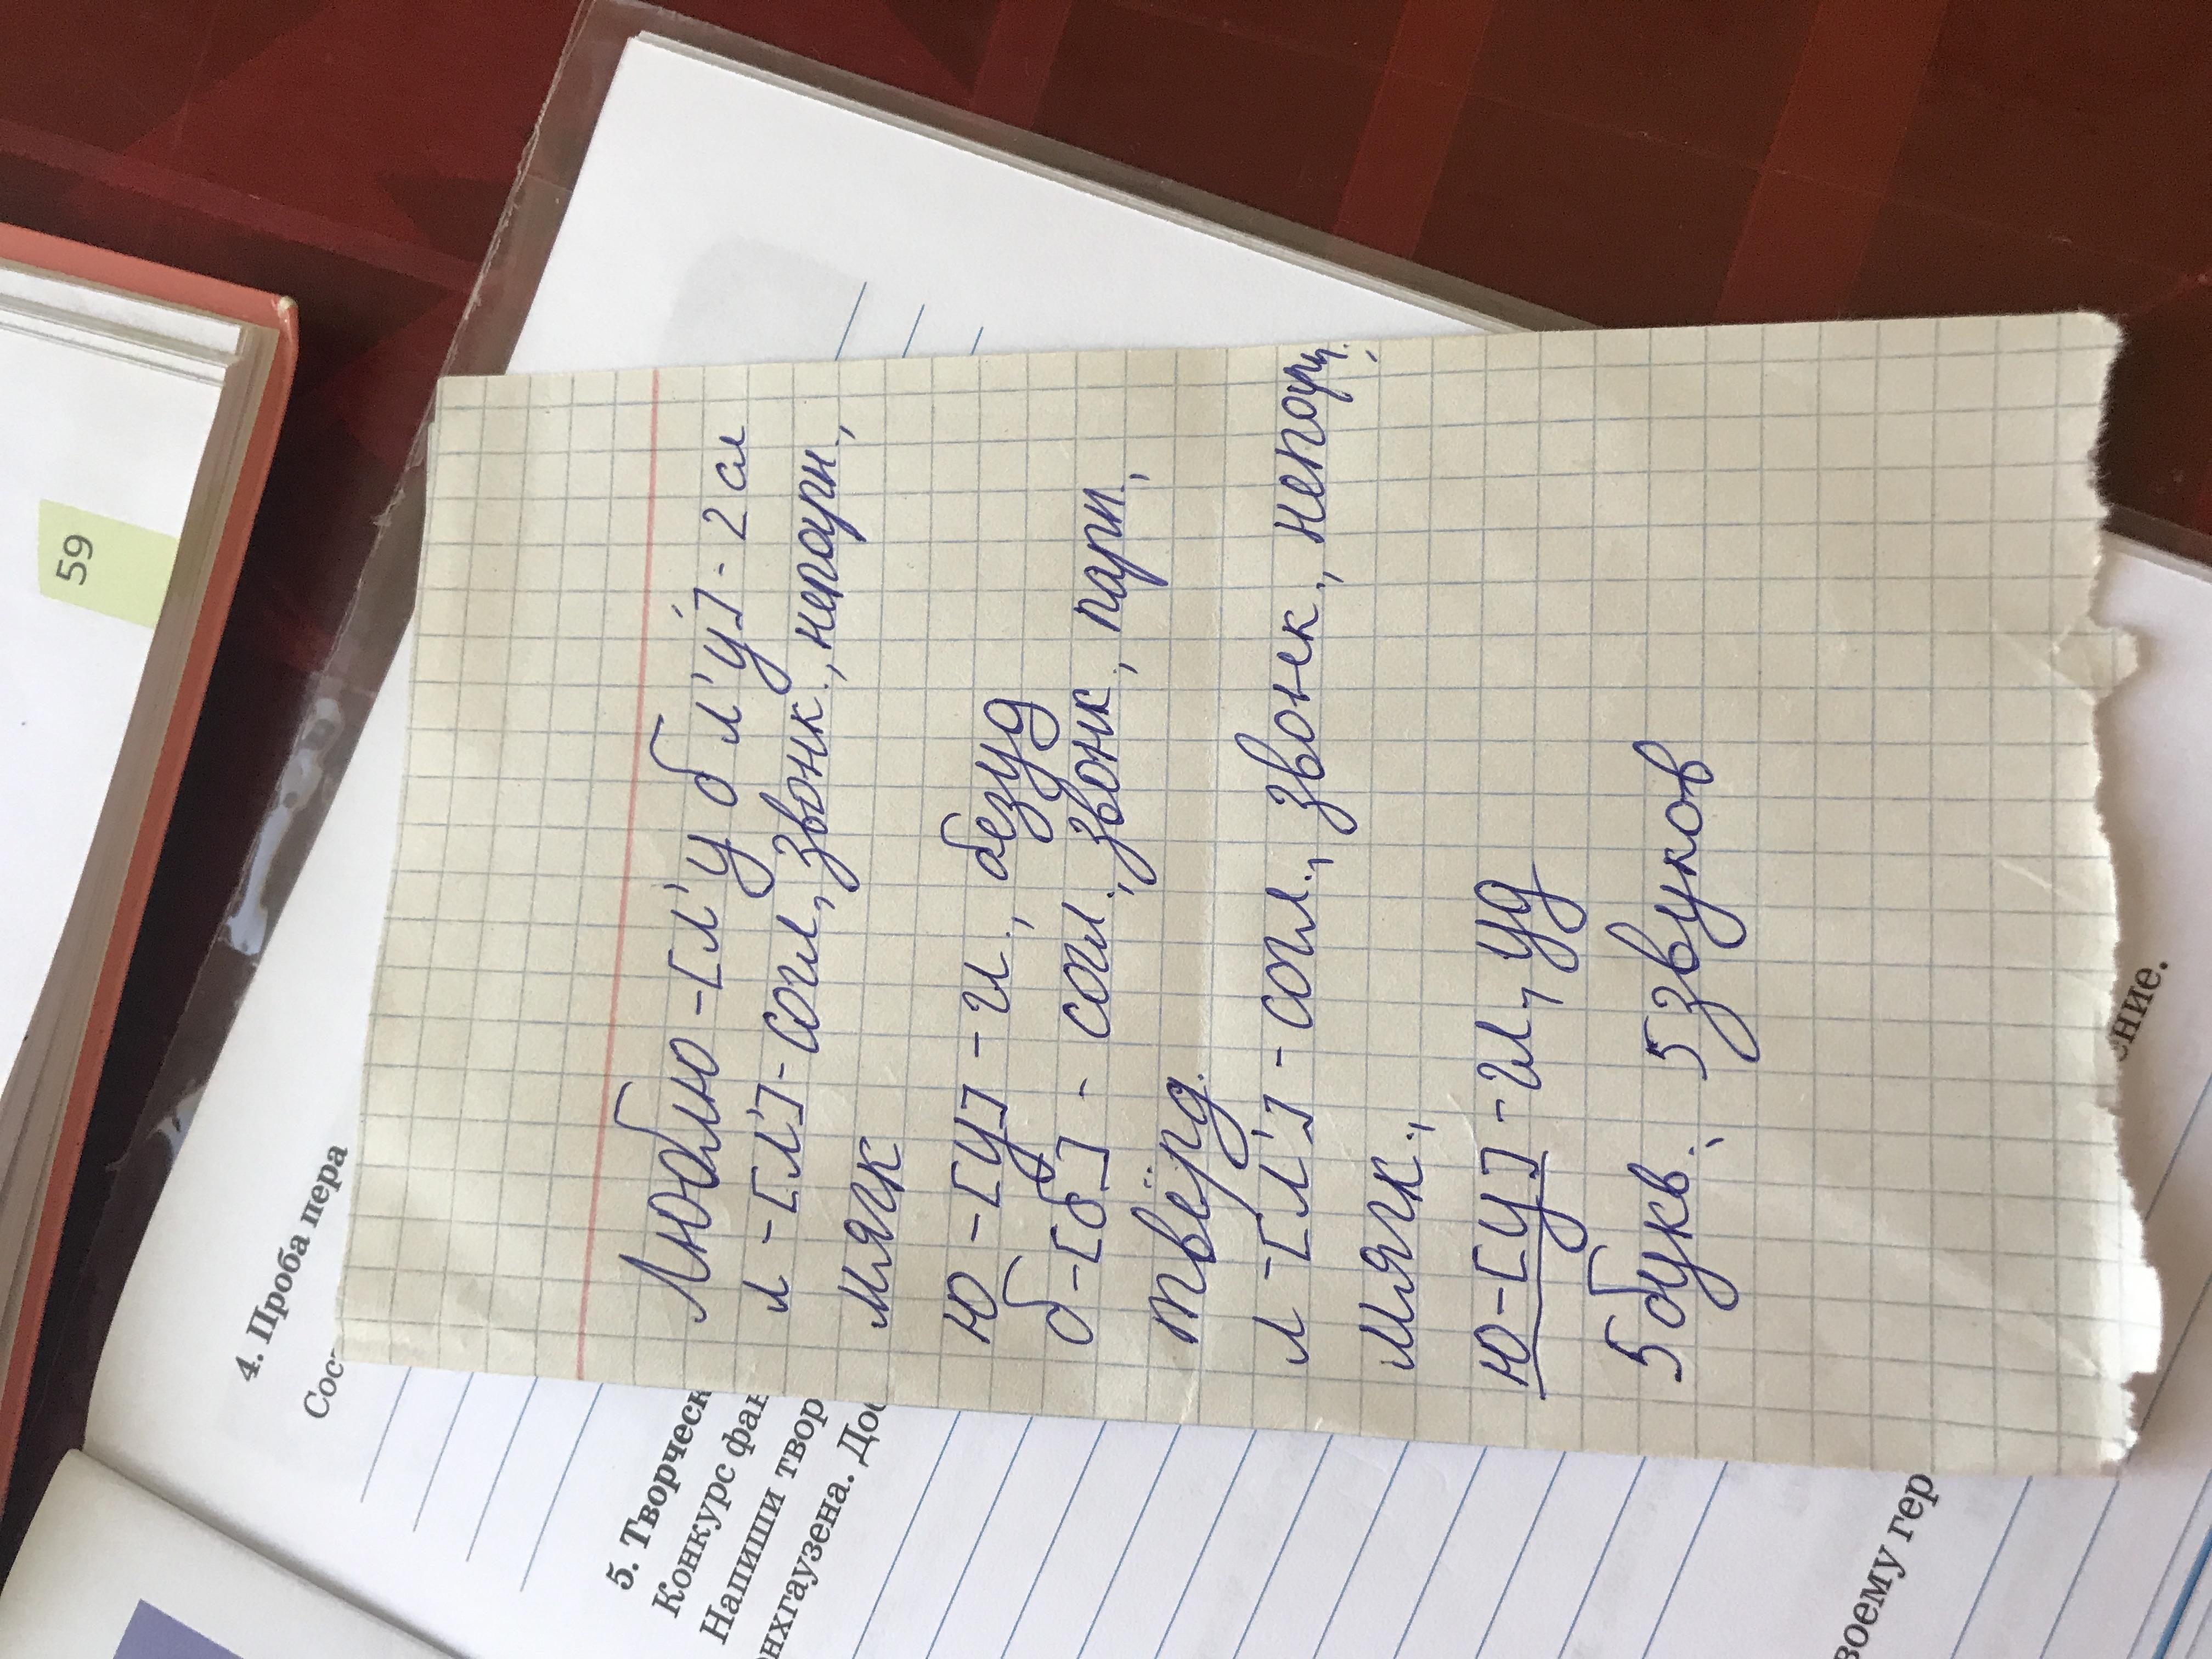 59
4. Проба пера
5. Творческ
Конкурс фан
Напиши твор
нхгаузена. Дос
Люблю - [л'у бл'у] - 2 сл
л - [л'] - согл., звонк., непарн.,
мягк
ю - [у] - гл., безуд
б - [б] - согл., звонк., парн.,
твёрд.
л - [л'] - согл., звонк., непарн.,
мягк.,
ю - [у] - гл., уд
5 букв., 5 звуков
ение.
воему гер